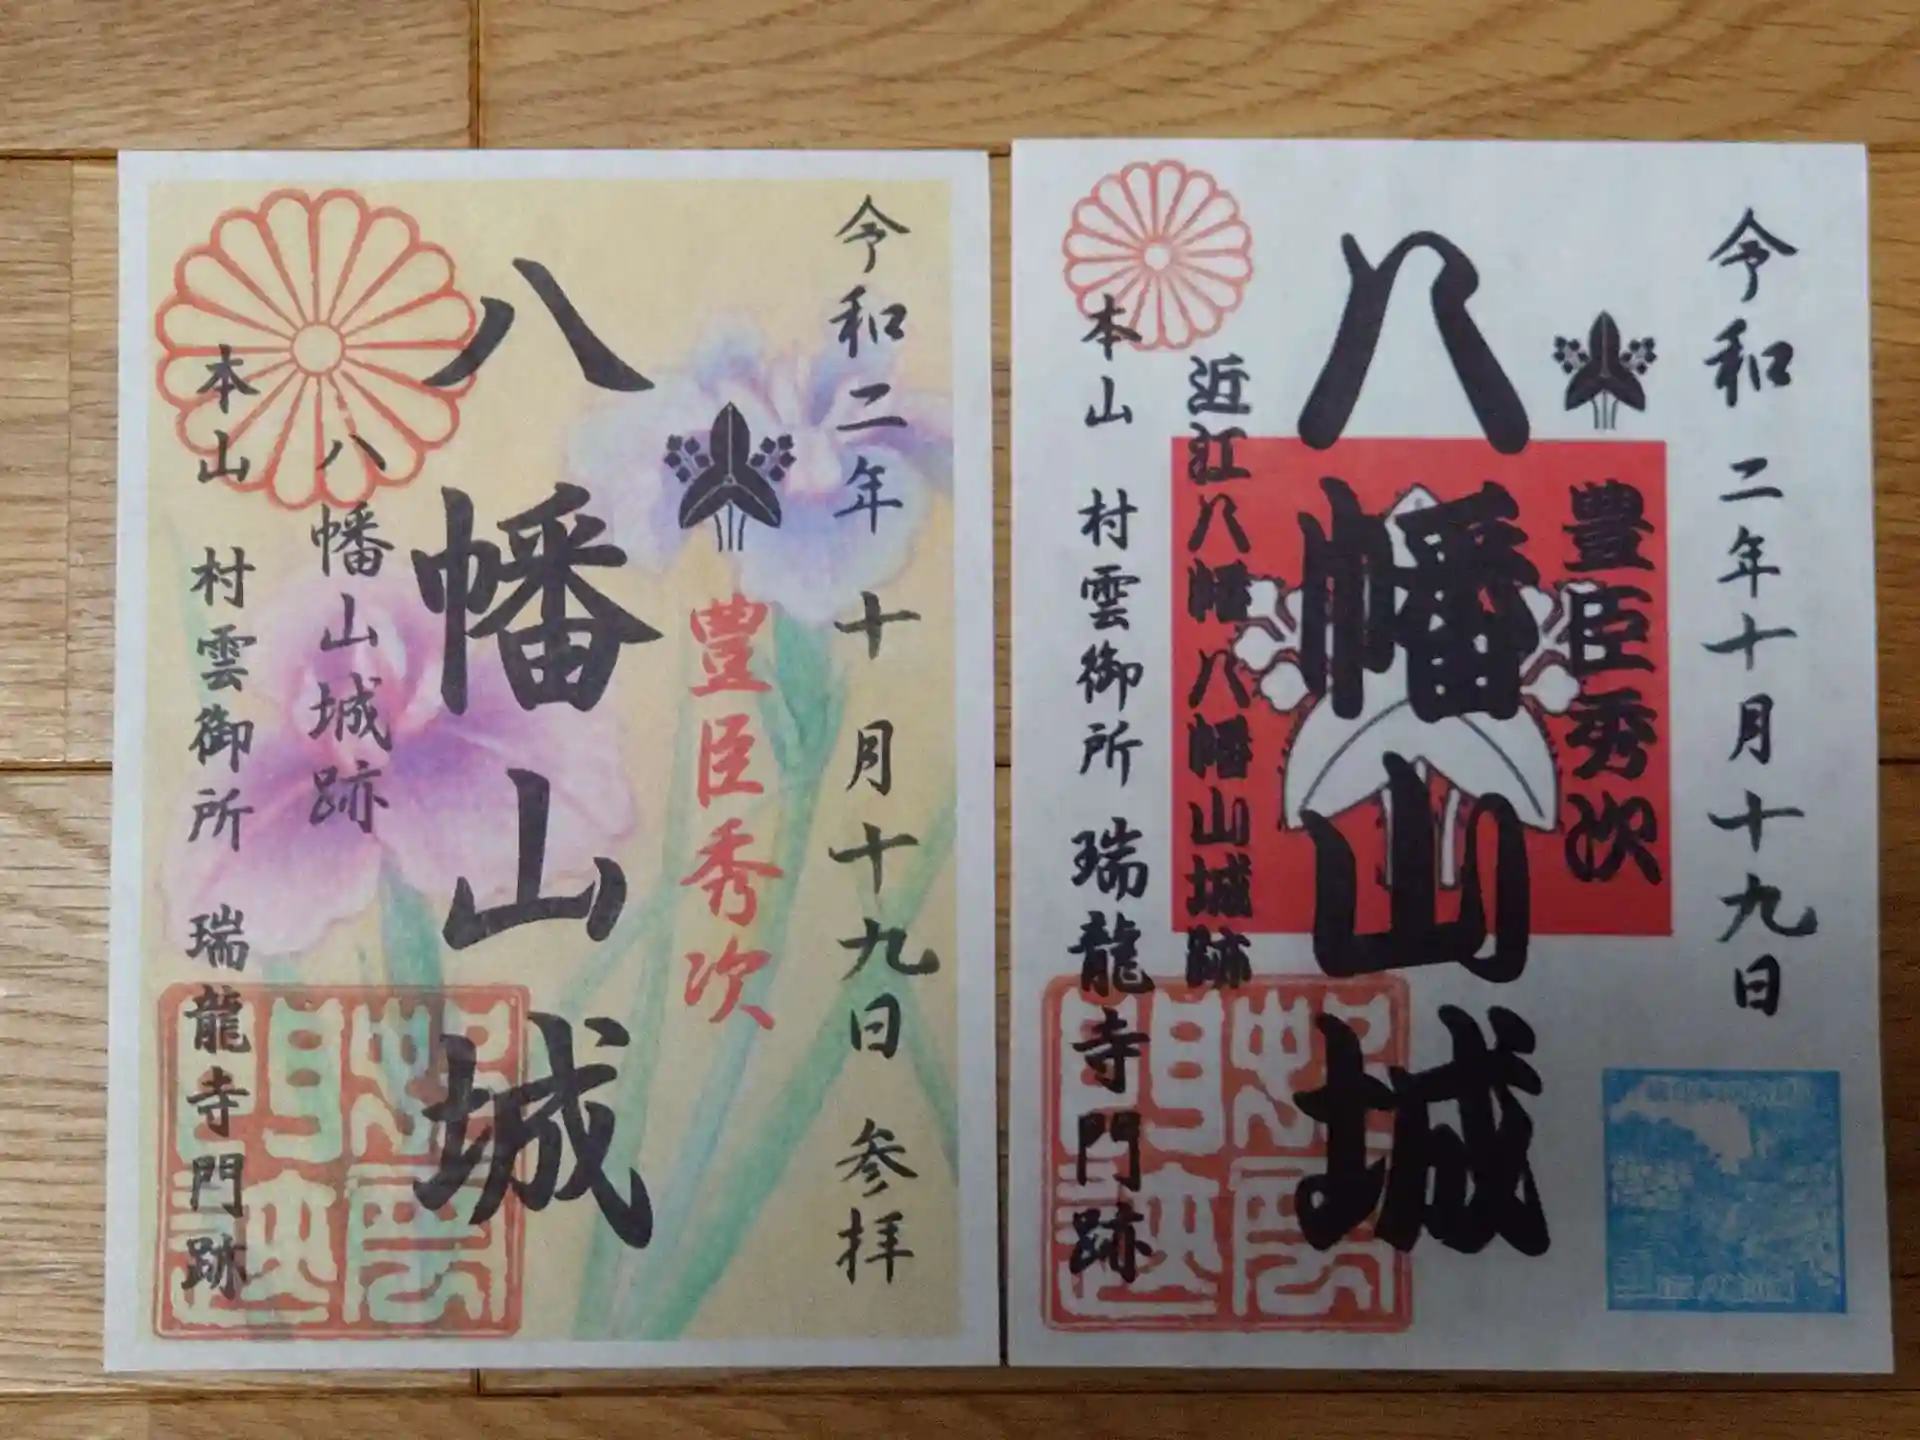 令和二年十月十九日 参拝
豊臣秀次
八幡山城
八幡山城跡
本山 村雲御所 瑞龍寺門跡
令和二年十月十九日
豊臣秀次
八幡山城
近江八幡八幡山城跡
本山 村雲御所 瑞龍寺門跡